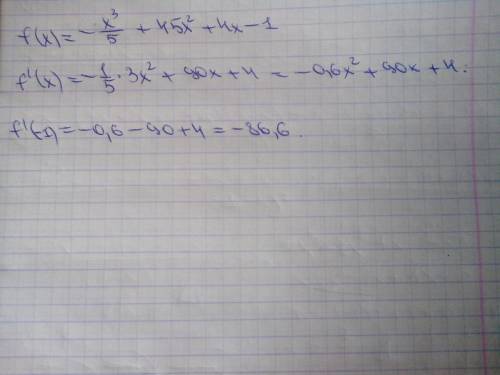 f(x) = -x³/5 + 45x² + 4x - 1
f'(x) = -1/5 · 3x² + 90x + 4 = -0,6x² + 90x + 4.
f'(-1) = -0,6 - 90 + 4 = -86,6.